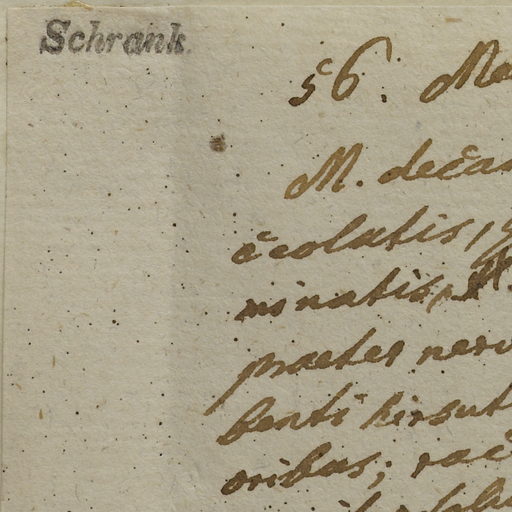 Schrank.
56. Me
M. decan
ecolatis, 
minatis,
praeter nerv
benti hirsut
oribus; rac